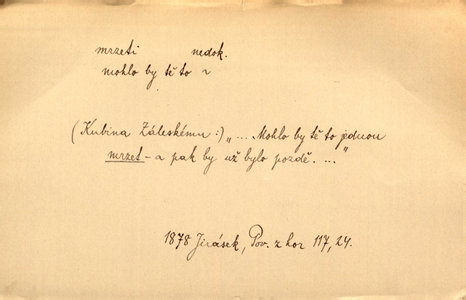 mrzeti nedok.
mohlo by tě to ~
(Kubina Záleskému:) „... Mohlo by tě to jednou
mrzet - a pak by už bylo pozdě. ..."
1878 Jirásek, Pov. z hor 117, 24.